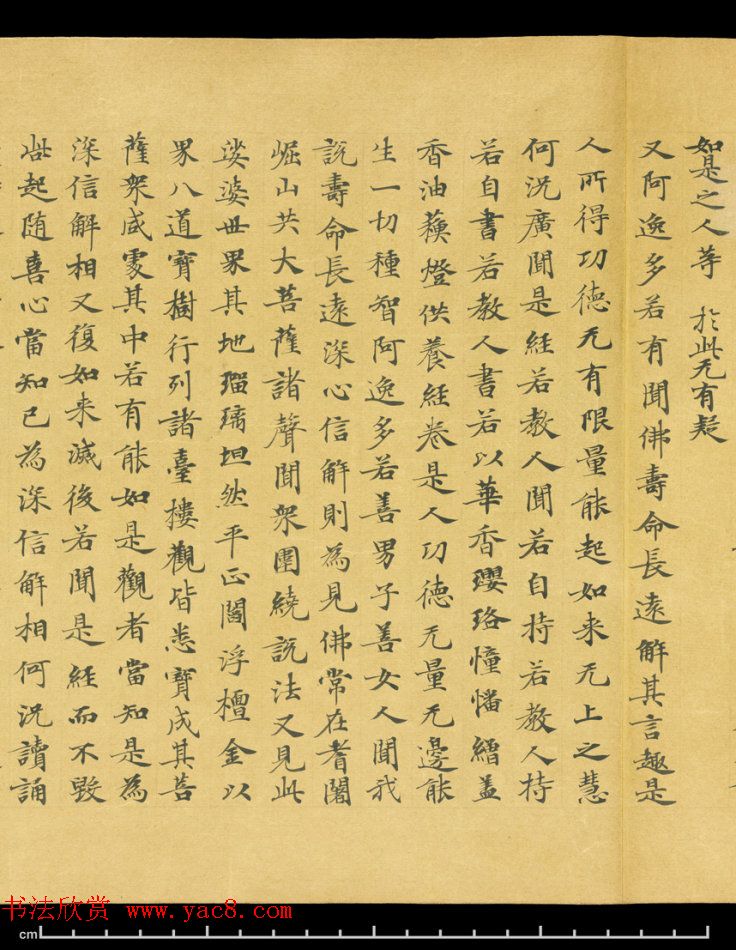 如是之人等　於此无有疑
又阿逸多若有聞佛壽命長遠解其言趣是
人所得功德无有限量能起如来无上之慧
何況廣聞是経若教人聞若自持若教人持
若自書若教人書若以華香瓔珞憧幡繒盖
香油蘓燈供養経卷是人功德无量无邊能
生一切種智阿逸多若善男子善女人聞我
說壽命長遠深心信解則為見佛常在耆闍
崛山共大菩薩諸聲聞衆圍繞說法又見此
娑婆世界其地瑠璃坦然平正閻浮檀金以
界八道寳樹行列諸臺樓觀皆悉寳成其菩
薩衆咸處其中若有能如是觀者當知是為
深信解相又復如来滅後若聞是経而不毀
呰起随喜心當知已為深信解相何況讀誦
书法欣赏 www.yac8.com
cm